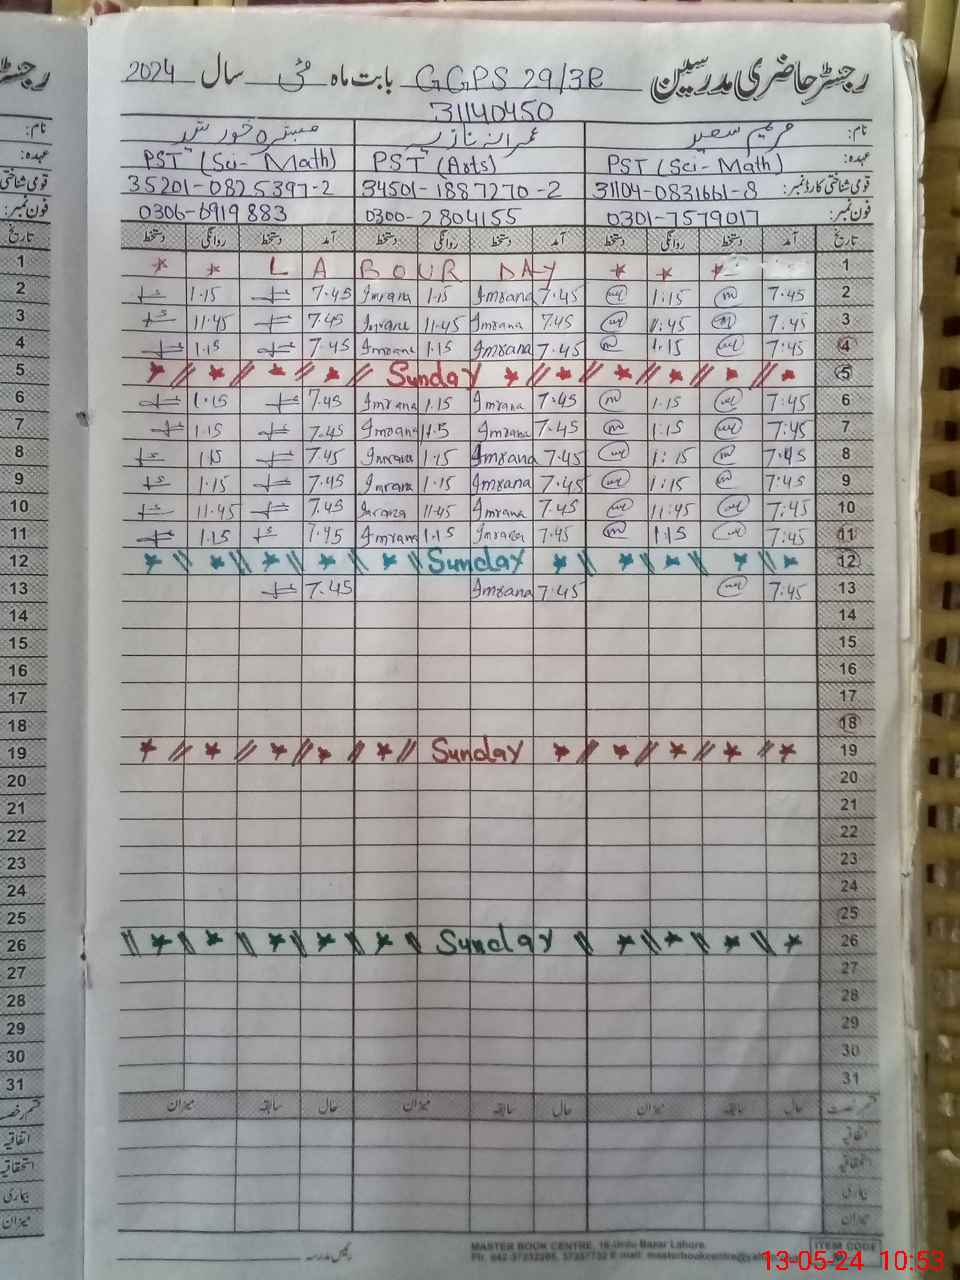 رجسٹر حاضری مدرسین GGPS 29/3R بابت ماہ مئی سال 2024
31140450
نام: مریم سعید عمرانہ نازیہ
عہدہ: PST (Sci- Math) PST (Arts) PST (Sci- Math)
قومی شناختی کارڈ نمبر: 31104-0831661-8 34501-1887270-2 35201-0825397-2
فون نمبر: 0301-7579017 0300-2804155 0306-6919883
تاریخ آمد دستخط روانگی دستخط آمد دستخط روانگی دستخط آمد دستخط روانگی دستخط
1 * * L A B O U R D A Y * * * 1
2 1.15 7.45 Imrana 1.15 Imrana 7.45 1:15 7.45 2
3 11.45 7.45 Imrana 11.45 Imrana 7.45 11:45 7:45 3
4 1.15 7.45 Imrana 1.15 Imrana 7.45 1.15 7:45 4
5 Sunday 5
6 1.15 7.45 Imrana 1.15 Imrana 7.45 1.15 7:45 6
7 1.15 7.45 Imrana 1.15 Imrana 7.45 1:15 7:45 7
8 1.15 7.45 Imrana 1.15 Imrana 7.45 1:15 7.45 8
9 1.15 7.45 Imrana 1.15 Imrana 7.45 1:15 7:45 9
10 11.45 7.45 Imrana 11.45 Imrana 7.45 11:45 7:45 10
11 1.15 7.45 Imrana 1.15 Imrana 7.45 1:15 7:45 11
12 Sunday 12
13 7.45 Imrana 7.45 7:45 13
14 14
15 15
16 16
17 17
18 18
19 Sunday 19
20 20
21 21
22 22
23 23
24 24
25 25
26 Sunday 26
27 27
28 28
29 29
30 30
31 31
حال سابقہ میزان حال سابقہ میزان حال سابقہ میزان
اتفاقیہ
استحقاقیہ
بیماری
میزان
رئیس مدرسہ
MASTER BOOK CENTRE, 16-Urdu Bazar Lahore.
ITEM CODE
13-05-24 10:53